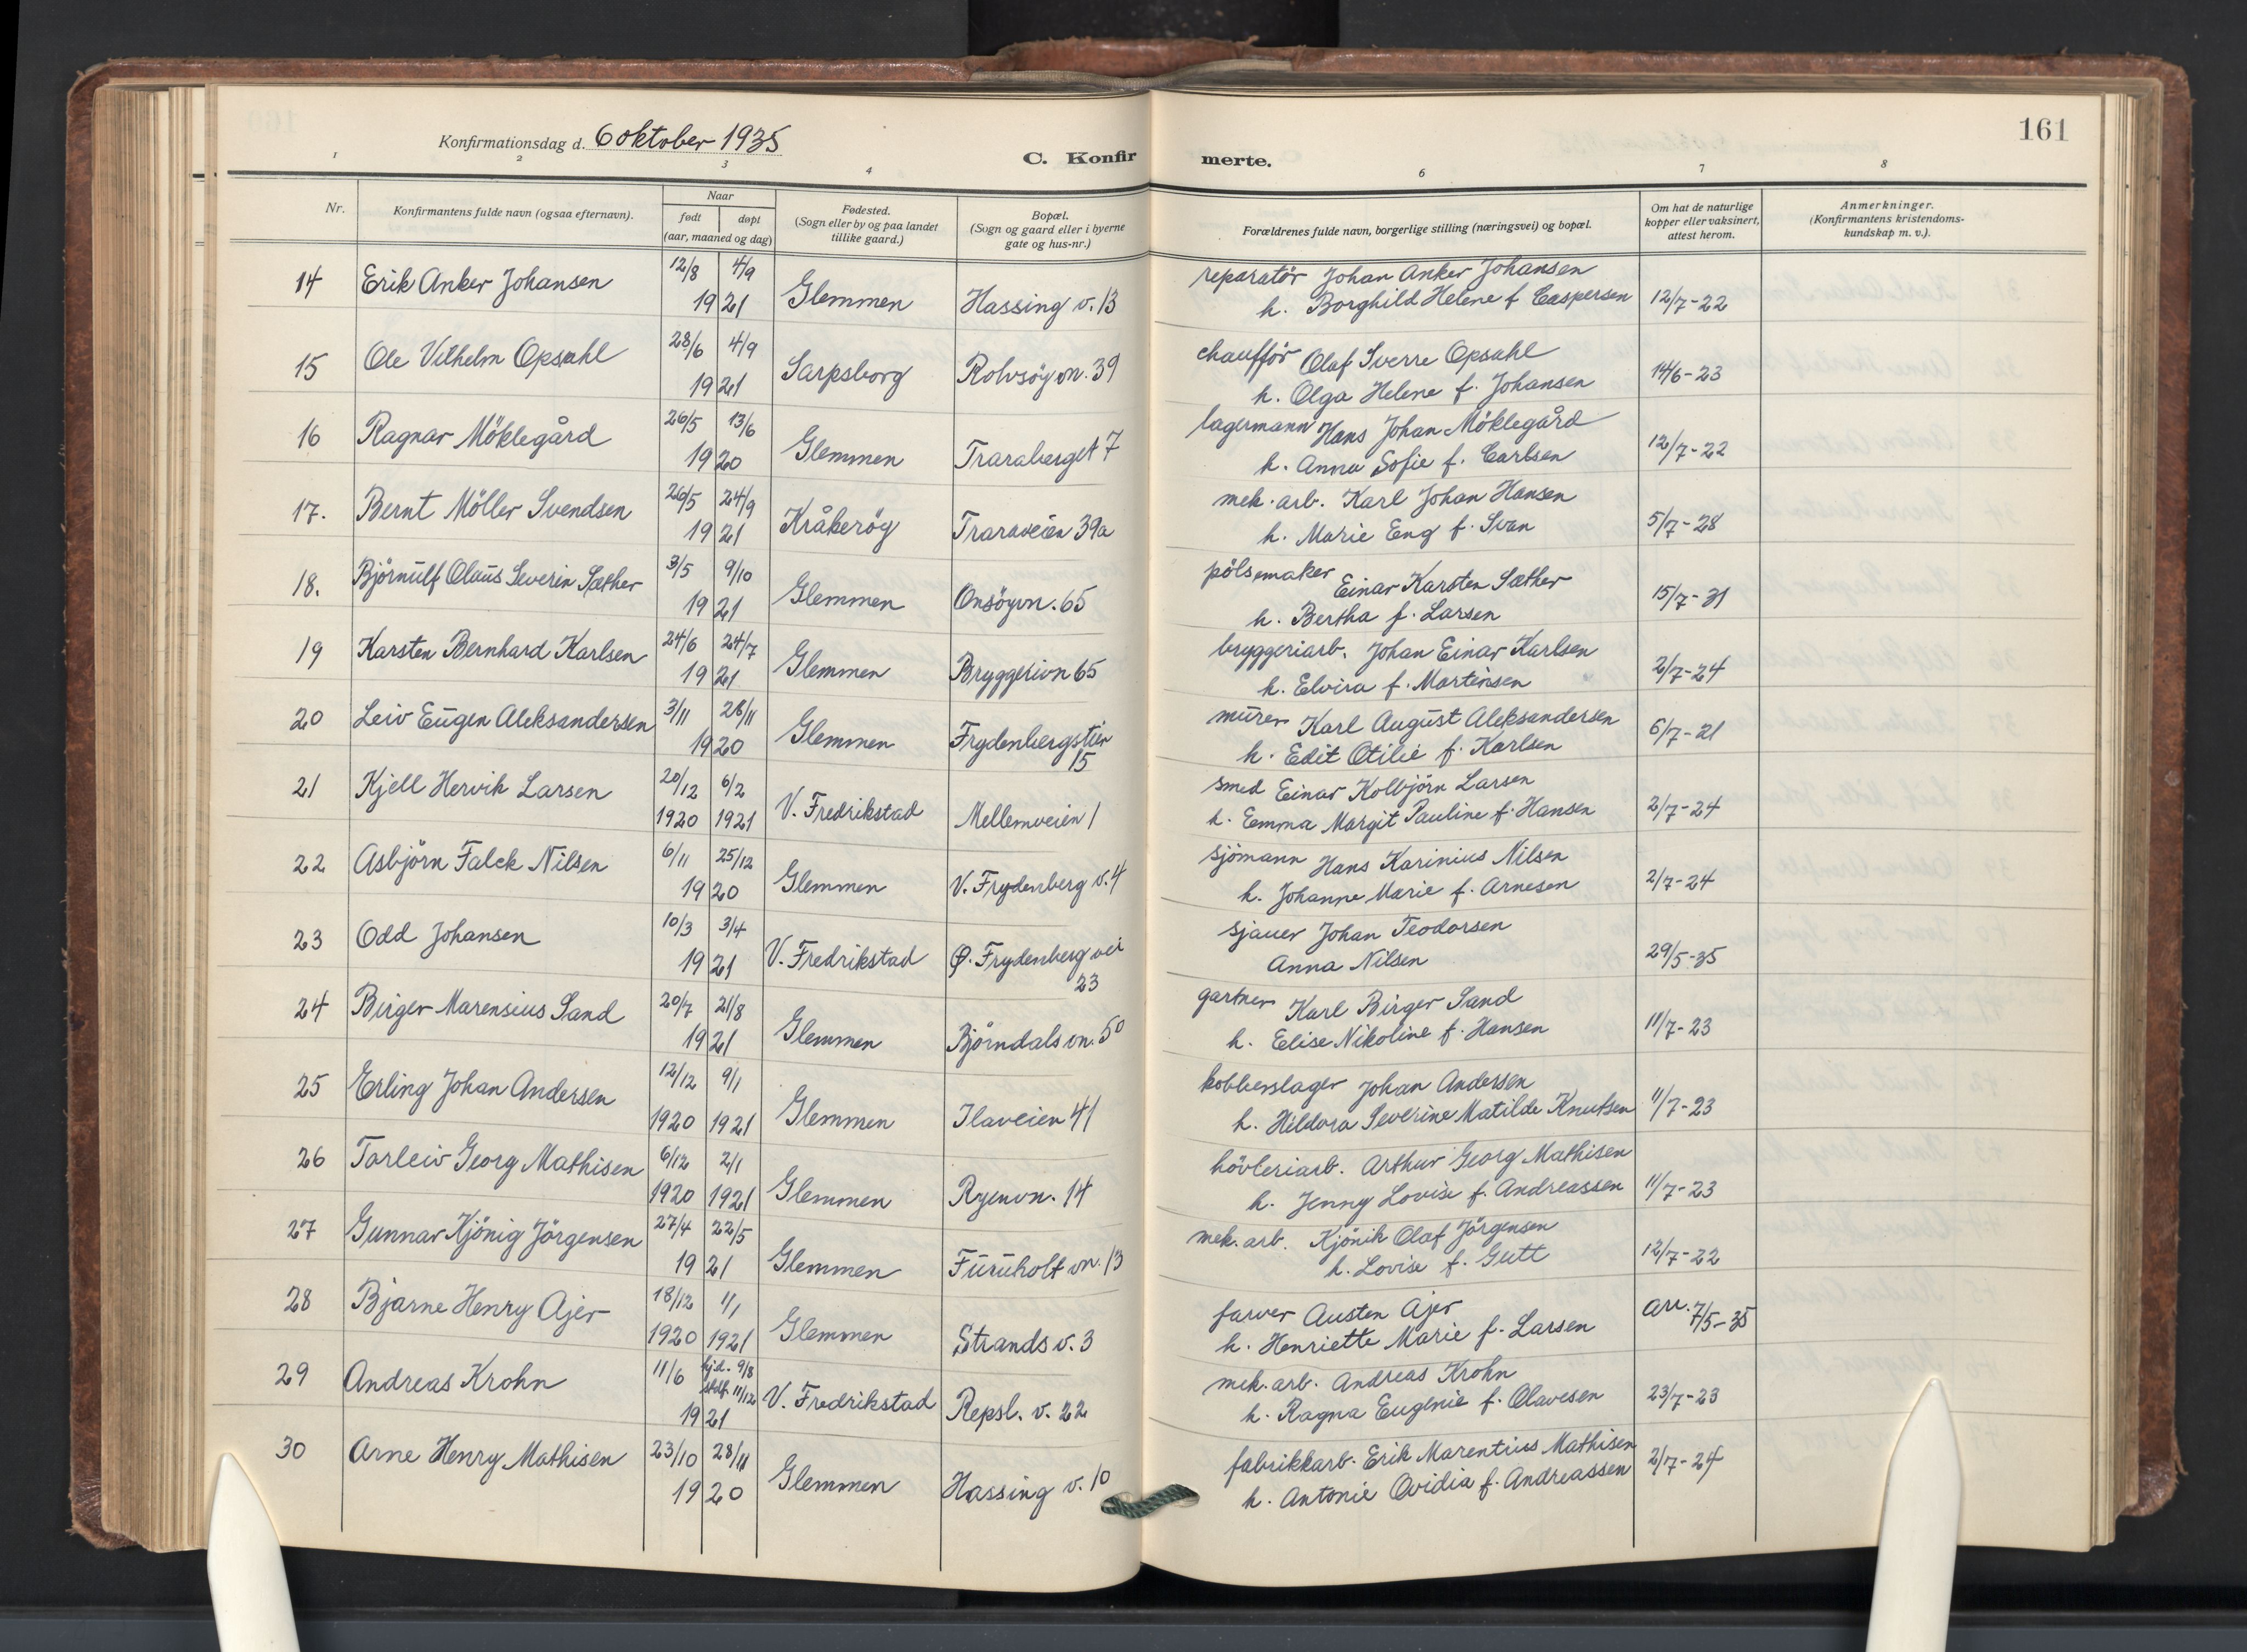 161
Konfirmationsdag d. 6 oktober 1935
C. Konfir merte.
1 2 3 4 6 7 8
Nr.
Konfirmantens fulde navn (ogsaa efternavn).
Naar
født døpt
(aar, maaned og dag)
Fødested.
(Sogn eller by og paa landet
tillike gaard.)
Bopæl.
(Sogn og gaard eller i byerne
gate og hus-nr.)
Forældrenes fulde navn, borgerlige stilling (næringsvei) og bopæl.
Om hat de naturlige
kopper eller vaksinert,
attest herom.
Anmerkninger.
(Konfirmantens kristendoms-
kundskap m. v.).
14 Erik Anker Johansen 12/8 4/9 1921 Glemmen Hassing v. 13 reparatör Johan Anker Johansen
h. Borghild Helene f. Caspersen 12/7-22
15 Ole Vilhelm Opsahl 28/6 4/9 1921 Sarpsborg Rolvsöy vn. 39 chaufför Olaf Sverre Opsahl
h. Olga Helene f. Johansen 14/6-23
16 Ragnar Möklegård 26/5 13/6 1920 Glemmen Traraberget 7 lagermann Hans Johan Möklegård
h. Anna Sofie f. Carlsen 12/7-22
17. Bernt Möller Svendsen 26/5 24/9 1921 Kråkeröy Traraveien 39a mek. arb. Karl Johan Hansen
h. Marie Eng f. Svan 5/7-28
18. Björnulf Olaus Severin Sæther 3/5 9/10 1921 Glemmen Onsöyvn. 65 pölsemaker Einar Karsten Sæther
h. Bertha f. Larsen 15/7-31
19 Karsten Bernhard Karlsen 24/6 24/7 1921 Glemmen Bryggerivn 65 bryggeriarb. Johan Einar Karlsen
h. Elvira f. Martinsen 2/7-24
20 Leiv Eugen Aleksandersen 3/11 28/11 1920 Glemmen Frydenbergstien 15 murer Karl August Aleksandersen
h. Edit Otilie f. Karlsen 6/7-21
21 Kjell Hervik Larsen 20/12 1920 6/2 1921 V. Fredrikstad Mellemveien 1 smed Einar Kolbjörn Larsen
h. Emma Margit Pauline f. Hansen 2/7-24
22 Asbjörn Falck Nilsen 6/11 25/12 1920 Glemmen V. Frydenberg v. 4 sjömann Hans Karinius Nilsen
h. Johanne Marie f. Arnesen 2/7-24
23 Odd Johansen 10/3 3/4 1921 V. Fredrikstad Ø. Frydenberg vei 23 sjauer Johan Teodorsen
Anna Nilsen 29/5-35
24 Birger Marensius Sand 20/7 21/8 1921 Glemmen Björndals vn. 50 gartner Karl Birger Sand
h. Elise Nikoline f. Hansen 11/7-23
25 Erling Johan Andersen 12/12 1920 9/1 1921 Glemmen Ilaveien 41 kobberslager Johan Andersen
h. Hildora Severine Matilde Knutsen 11/7-23
26 Torleiv Georg Mathisen 6/12 1920 2/1 1921 Glemmen Ryenvn. 14 hövleriarb. Arthur Georg Mathisen
h. Jenny Lovise f. Andreassen 11/7-23
27 Gunnar Kjönig Jörgensen 27/4 22/5 1921 Glemmen Furuholt vn. 13 mek. arb. Kjönik Olaf Jörgensen
h. Lovise f. Gutt 12/7-22
28 Bjarne Henry Ajer 18/12 1920 1/1 1921 Glemmen Strands v. 3 farver Austen Ajer
h. Henriette Marie f. Larsen arr. 7/5-35
29 Andreas Krohn 11/6 hjd. 9/8 stdf. 11/12 1921 V. Fredrikstad Repsl. v. 22 mek. arb. Andreas Krohn
h. Ragna Eugenie f. Olavesen 23/7-23
30 Arne Henry Mathisen 23/10 28/11 1920 Glemmen Hassing v. 10 fabrikkarb. Erik Marentius Mathisen
h. Antonie Ovidia f. Andreassen 2/7-24